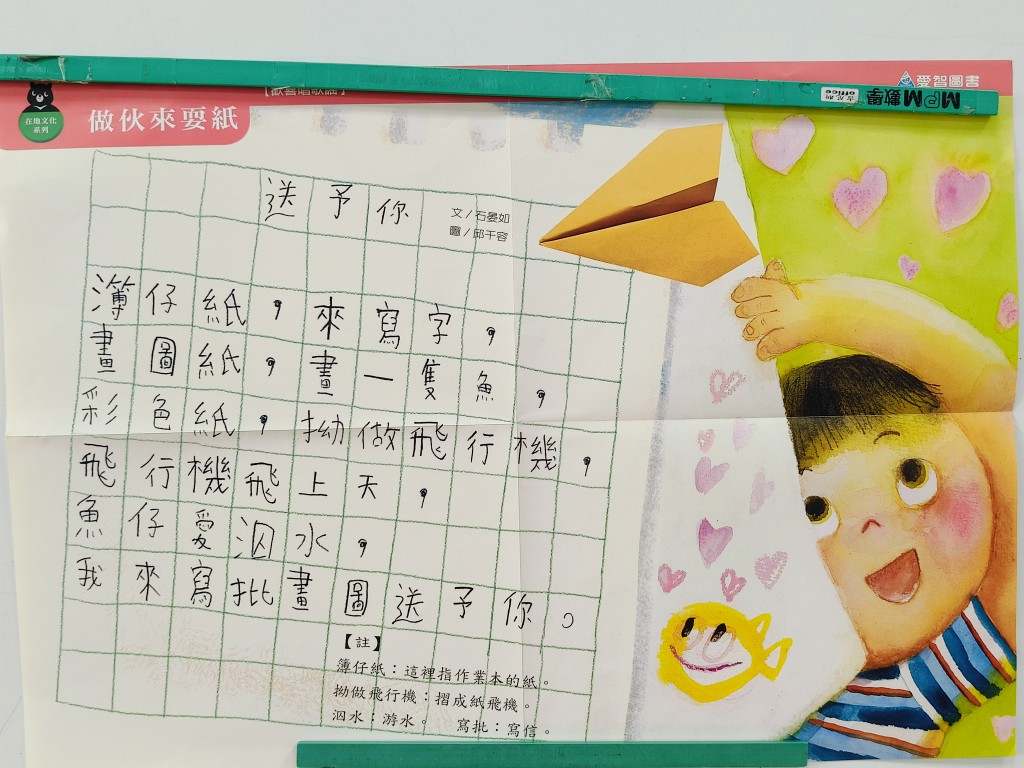 愛智圖書
MPM數學
office
【歡喜唱歌謠】
在地文化
系列
做伙來耍紙
送予你
文／石晏如
圖／邱千容
簿仔紙，來寫字，
畫圖紙，畫一隻魚，
彩色紙，拗做飛行機，
飛行機飛上天，
魚仔愛泅水，
我來寫批畫圖送予你。
【註】
簿仔紙：這裡指作業本的紙。
拗做飛行機：摺成紙飛機。
泅水：游水。 寫批：寫信。